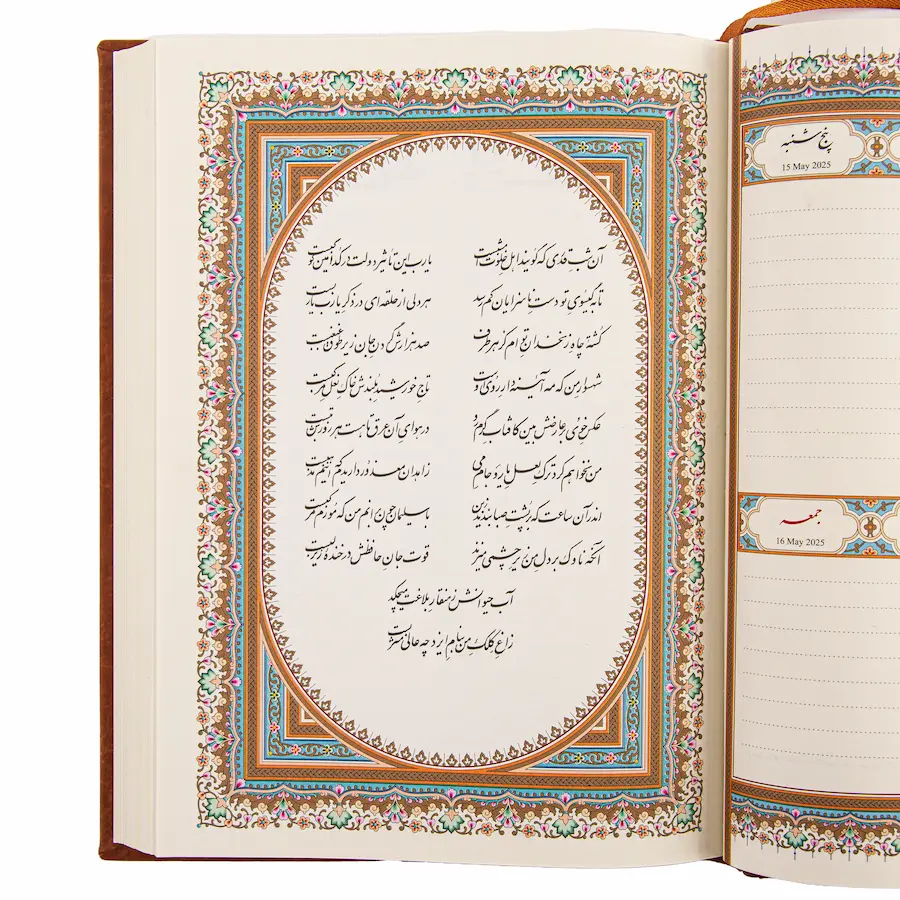 آن شبِ قدری که گویند اهل خلوت امشبست یارب این تأثیر دولت در کدامین کوکبست
تا به گیسوی تو دستِ ناسزایان کم رسد هر دلی از حلقه‌ای در ذکرِ یارب یاربست
کشتهٔ چاهِ زنخدانِ توام کز هر طرف صد هزارش گردن جان زیر طوق غبغبست
شهسوارِ من که مه آیینه‌دارِ روی اوست تاج خورشید بلندش خاک نعل مرکبست
عکس خوی بر عارضش بین کافتاب گرم رو در هوای آن عرق تا هست هر روزش تبست
من نخواهم کرد ترک لعل یار و جام می زاهدان معذور داریدم که اینم مذهبست
اندر آن ساعت که بر پشت صبا بندند زین با سلیمان چون برانم من که مورم مرکبست
آنکه ناوک بر دل من زیر چشمی میزند قوت جان حافظش در خندهٔ زیر لبست
آب حیوانش ز منقار بلاغت میچکد
زاغ کلک من بنام ایزد چه عالی مشربست
پنج شنبه
15 May 2025
جمعه
16 May 2025